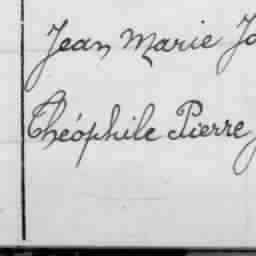 Jean Marie Jo
Théophile Pierre